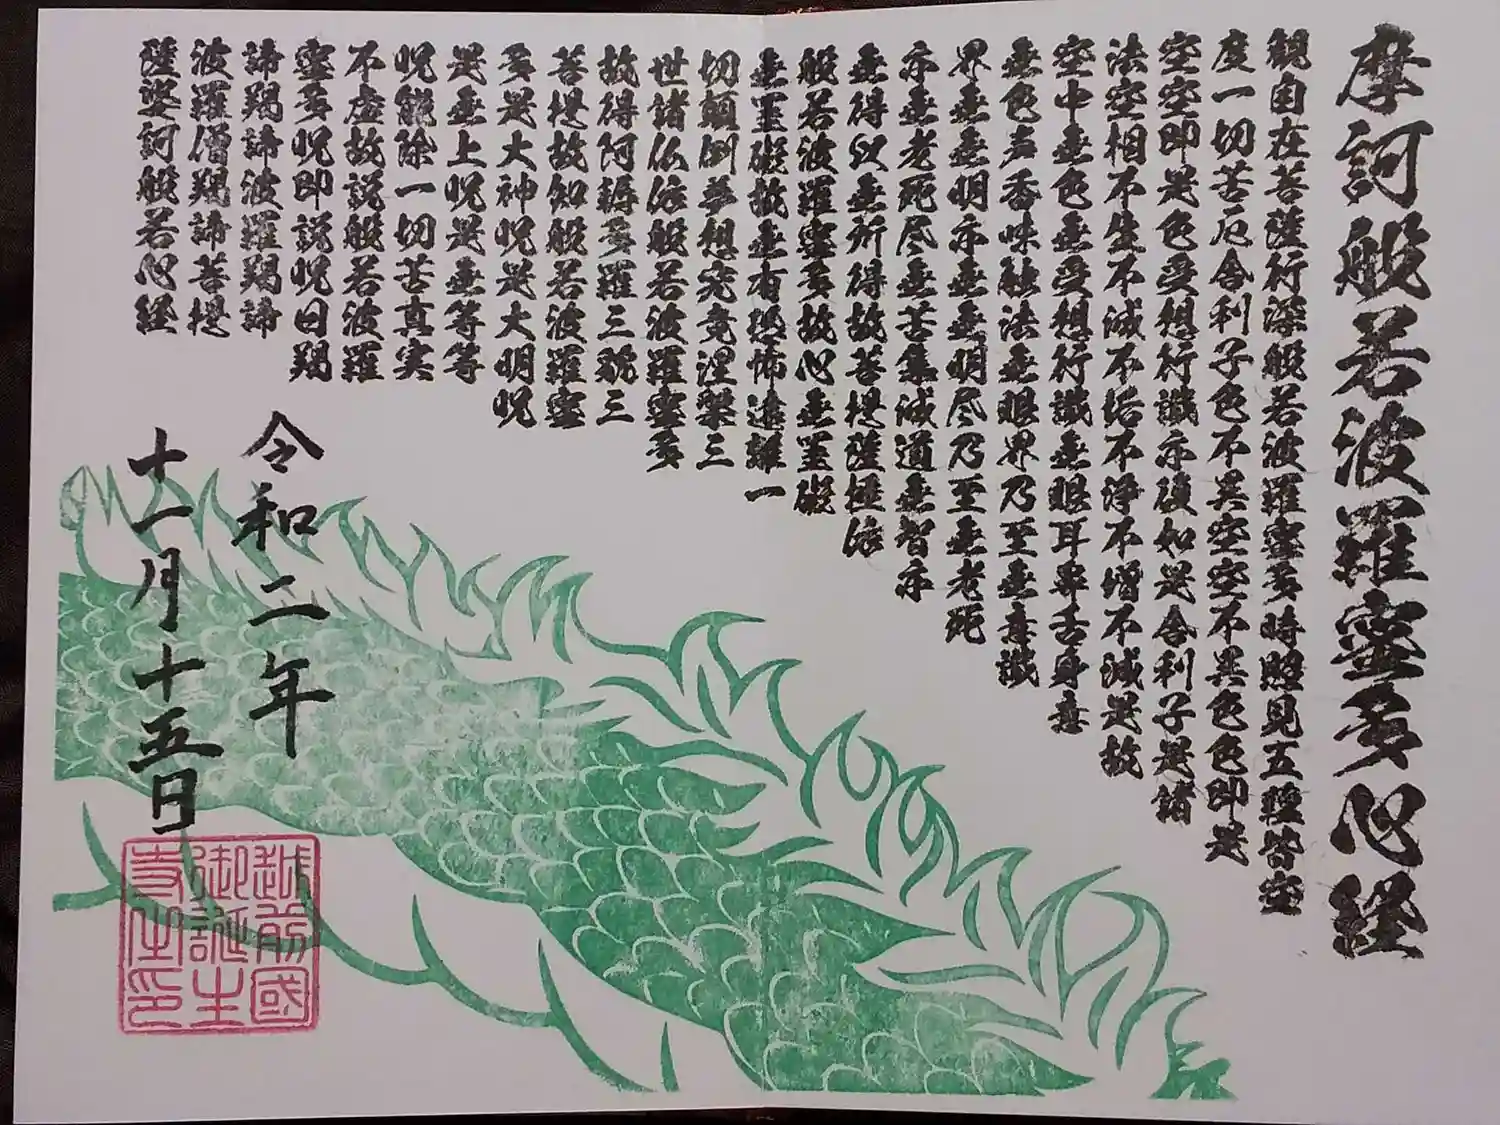 摩訶般若波羅蜜多心経
観自在菩薩行深般若波羅蜜多時照見五蘊皆空
度一切苦厄舎利子色不異空空不異色色即是
空空即是色受想行識亦復如是舎利子是諸
法空相不生不滅不垢不浄不増不減是故
空中無色無受想行識無眼耳鼻舌身意
無色声香味触法無眼界乃至無意識
界無無明亦無無明尽乃至無老死
亦無老死尽無苦集滅道無智亦
無得以無所得故菩提薩埵依
般若波羅蜜多故心無罣礙
無罣礙故無有恐怖遠離一
切顛倒夢想究竟涅槃三
世諸仏依般若波羅蜜多
故得阿耨多羅三藐三
菩提故知般若波羅蜜
多是大神呪是大明呪
是無上呪是無等等
呪能除一切苦真実
不虚故説般若波羅
蜜多呪即説呪曰羯
諦羯諦波羅羯諦
波羅僧羯諦菩提
薩婆訶般若心経
令和二年
十一月十五日
越前國
御誕生
寺之印